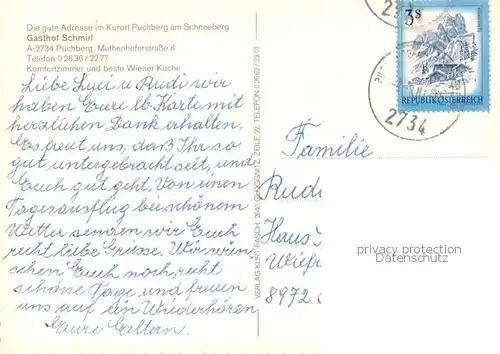 Die gute Adresse im Kurort Puchberg am Schneeberg
Gasthof Schmirl
A-2734 Puchberg, Muthenhoferstraße 8
Telefon 0 26 36 / 22 77
Komfortzimmer und beste Wiener Küche
Liebe Luci u Rudi wir
haben Eure lb. Karte mit
herzlichen Dank erhalten.
Es freut uns, daß Ihr so
gut untergebracht seit, und
Euch gut geht, Von einen
Tagesausflug bei schönem
Wetter senden wir Euch
recht liebe Grüsse. Wir wün-
schen Euch noch, recht
schöne Tage, und freuen
uns auf ein Wiederhören
Eure Eltern.
VERLAG KURT RASCH, 2640 GLOGGNITZ, ZEILE 22, TELEFON 0 26 62 / 25 03
3 S
REPUBLIK ÖSTERREICH
2734
2734
Familie
Rudi
Haus
Wiefr
8972
privacy protection
Datenschutz